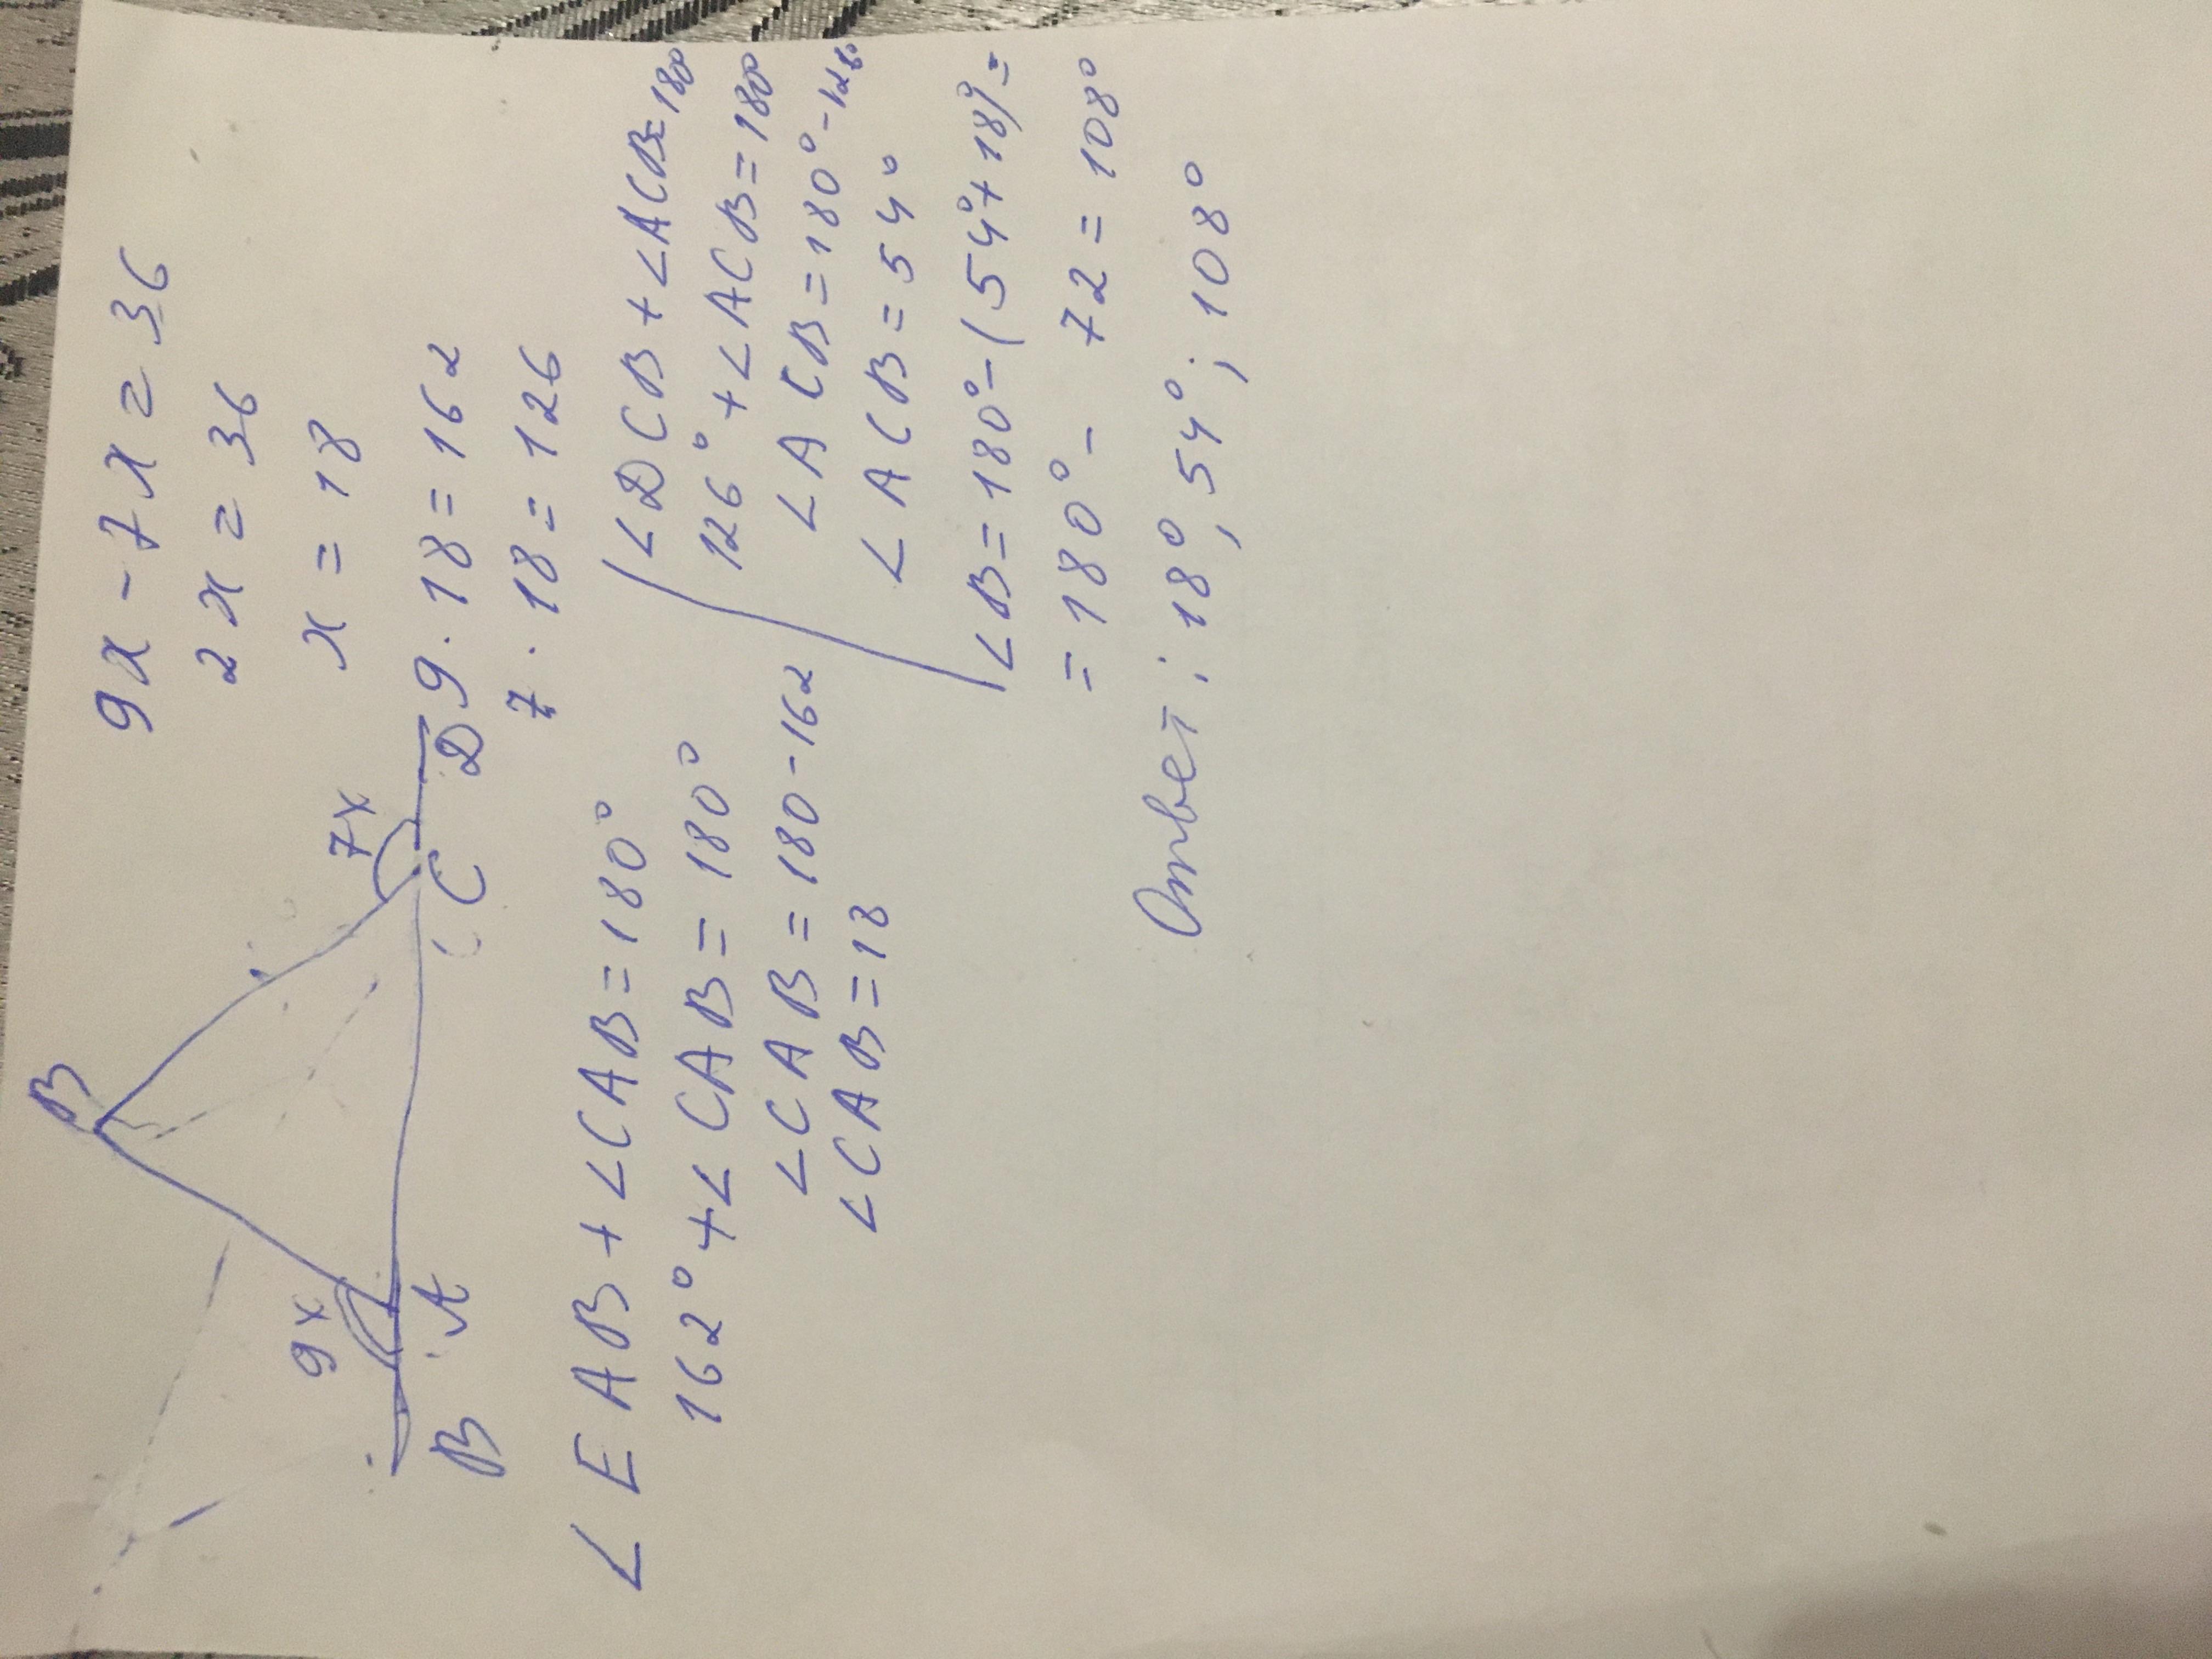 B
9x
7x
B A C D
9x - 7x = 36
2x = 36
x = 18
9 · 18 = 162
7 · 18 = 126
∠EAB + ∠CAB = 180°
162° + ∠CAB = 180°
∠CAB = 180 - 162
∠CAB = 18
∠DCB + ∠ACB = 180°
126° + ∠ACB = 180°
∠ACB = 180° - 126°
∠ACB = 54°
∠B = 180° - (54° + 18°) =
= 180° - 72 = 108°
Ответ: 18°, 54°; 108°